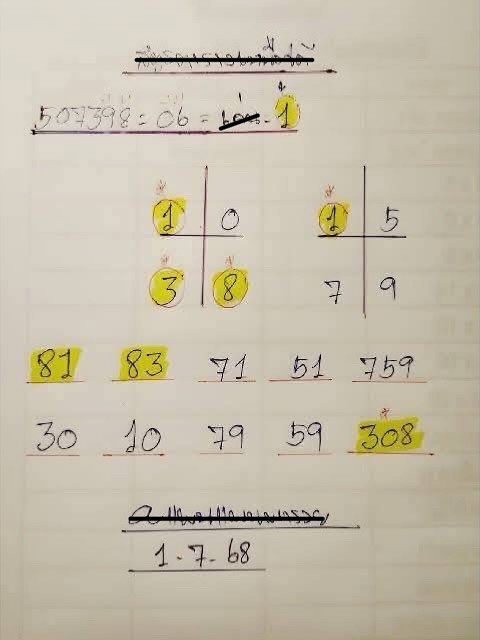 507398 = 06 = เด่น - 1
1 0
3 8
1 5
7 9
81 83 71 51 759
30 10 79 59 308
1 - 7 - 68